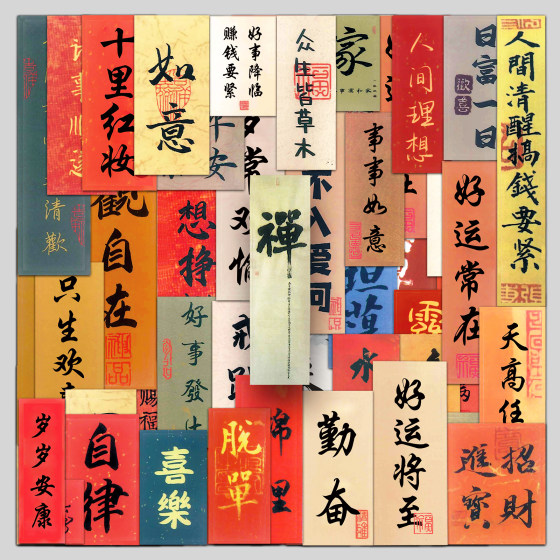 事顺遂
十里红妆
如意
好事降临
赚钱要紧
众生皆草木
家
人间理想
日富一日
歡喜
人間清醒搞錢要紧
清歡
安
事事如意
觀自在
想挣
入爱河
禪
好运常在
只生欢
好事發
坦荡
天高任
岁岁安康
自律
喜樂
脫單
里
勤奋
好运将至
招財
進寶